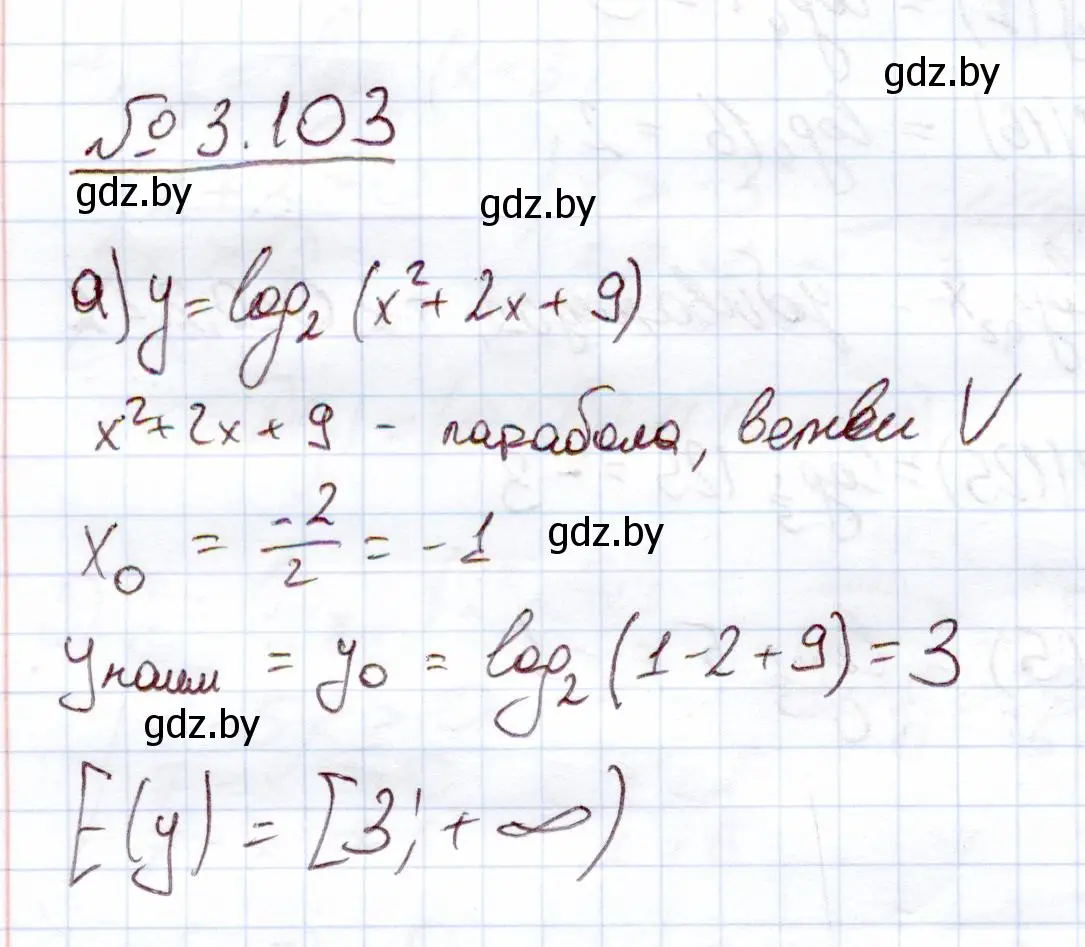 gdz.by
№ 3.103
gdz.by gdz.by
а) y = log₂ (x² + 2x + 9)
x² + 2x + 9 - парабола, ветви V
x₀ = -2/2 = -1 gdz.by
yнаим = y₀ = log₂ (1 - 2 + 9) = 3
gdz.by
E(y) = [3; + ∞)